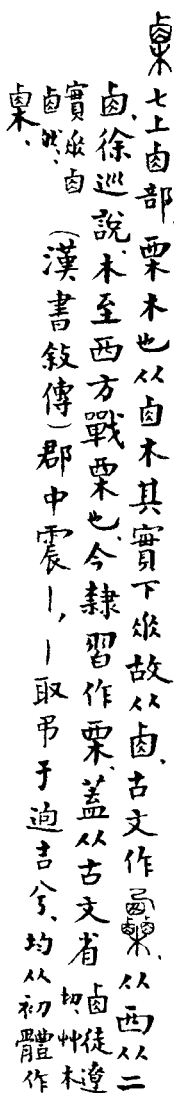 㮚 七上卤部、㮚木也从卤木其實下𠂹故从卤、古文作𣡷、从西从二
卤、徐巡說、木至西方戰栗也、今隸習作栗、蓋从古文省 卤徒遼切、艸木
實𠂹卤卤然、(漢書敍傳)郡中震丨,丨取弔于逌吉兮、均从初體作
㮚、